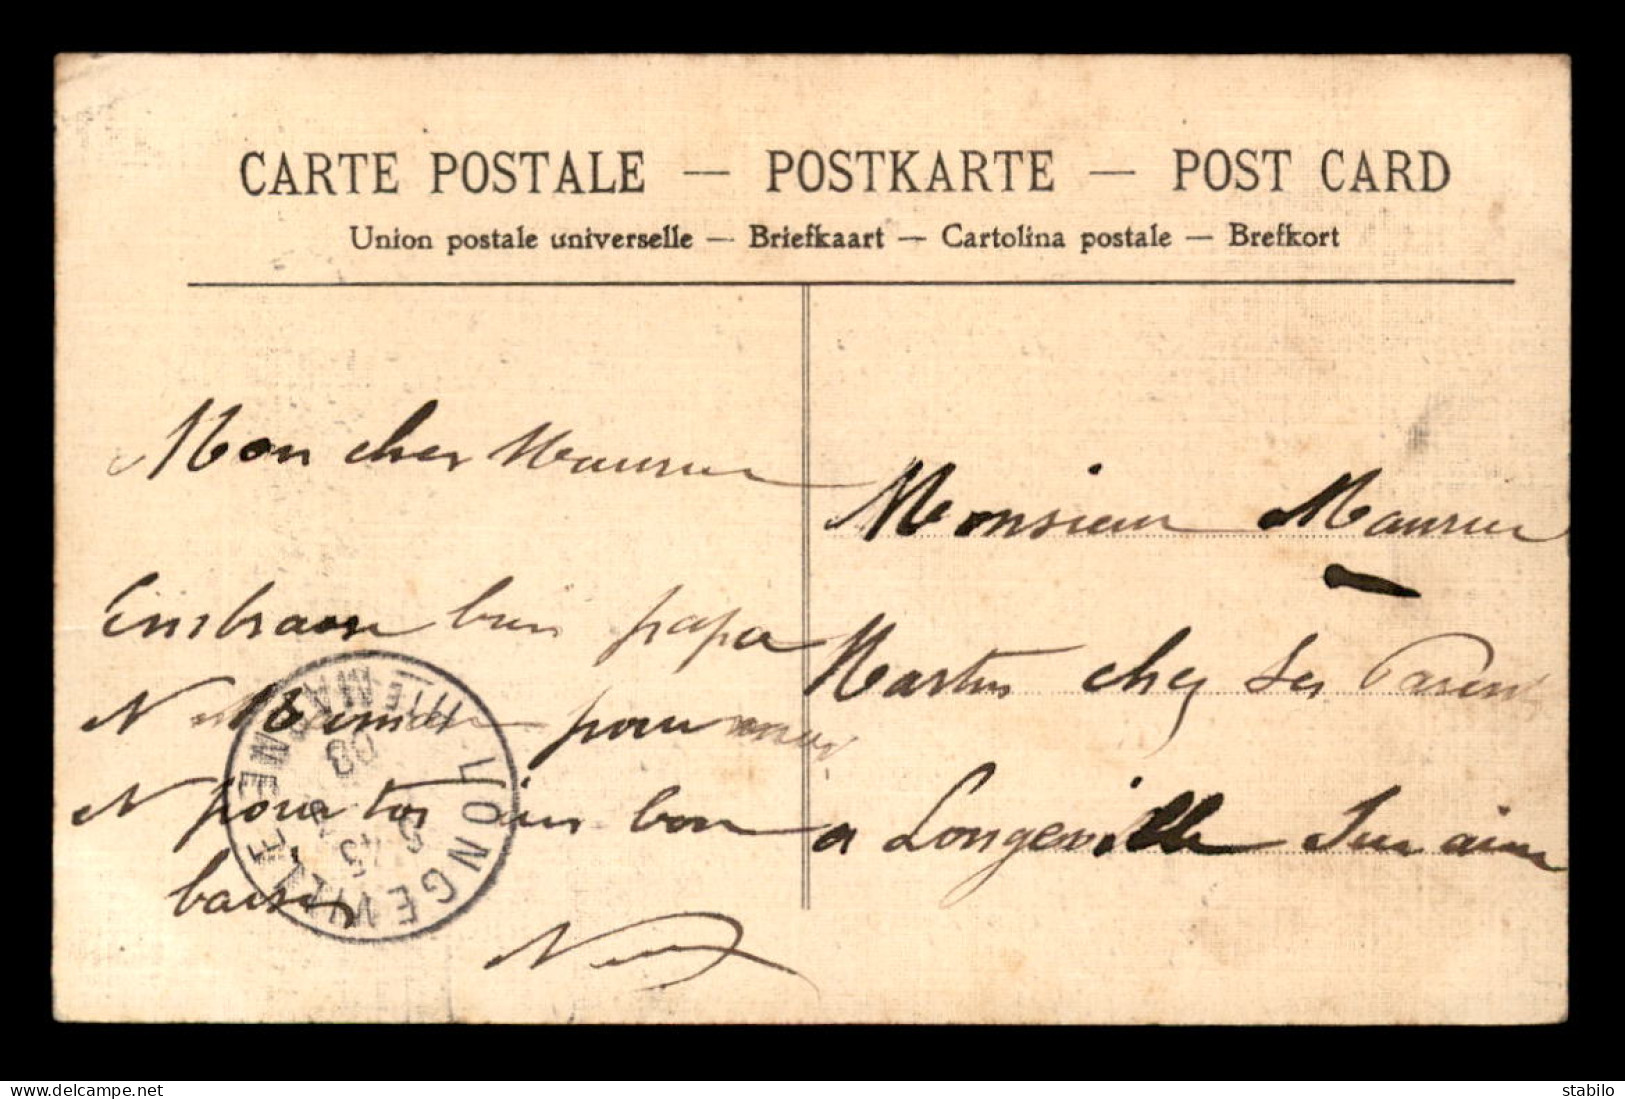 CARTE POSTALE — POSTKARTE — POST CARD
Union postale universelle — Briefkaart — Cartolina postale — Brefkort
Mon cher Maurice
Embrasse bien papa
Maman pour moi
pour toi un bon
baiser
Monsieur Maurice
Martin chez Ses Parents
a Longeville Sur aine
LONGEVILLE
HTE MARNE
www.delcampe.net
stabilo